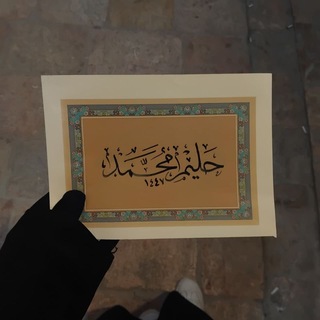 حليم محمد
١٤٤٧